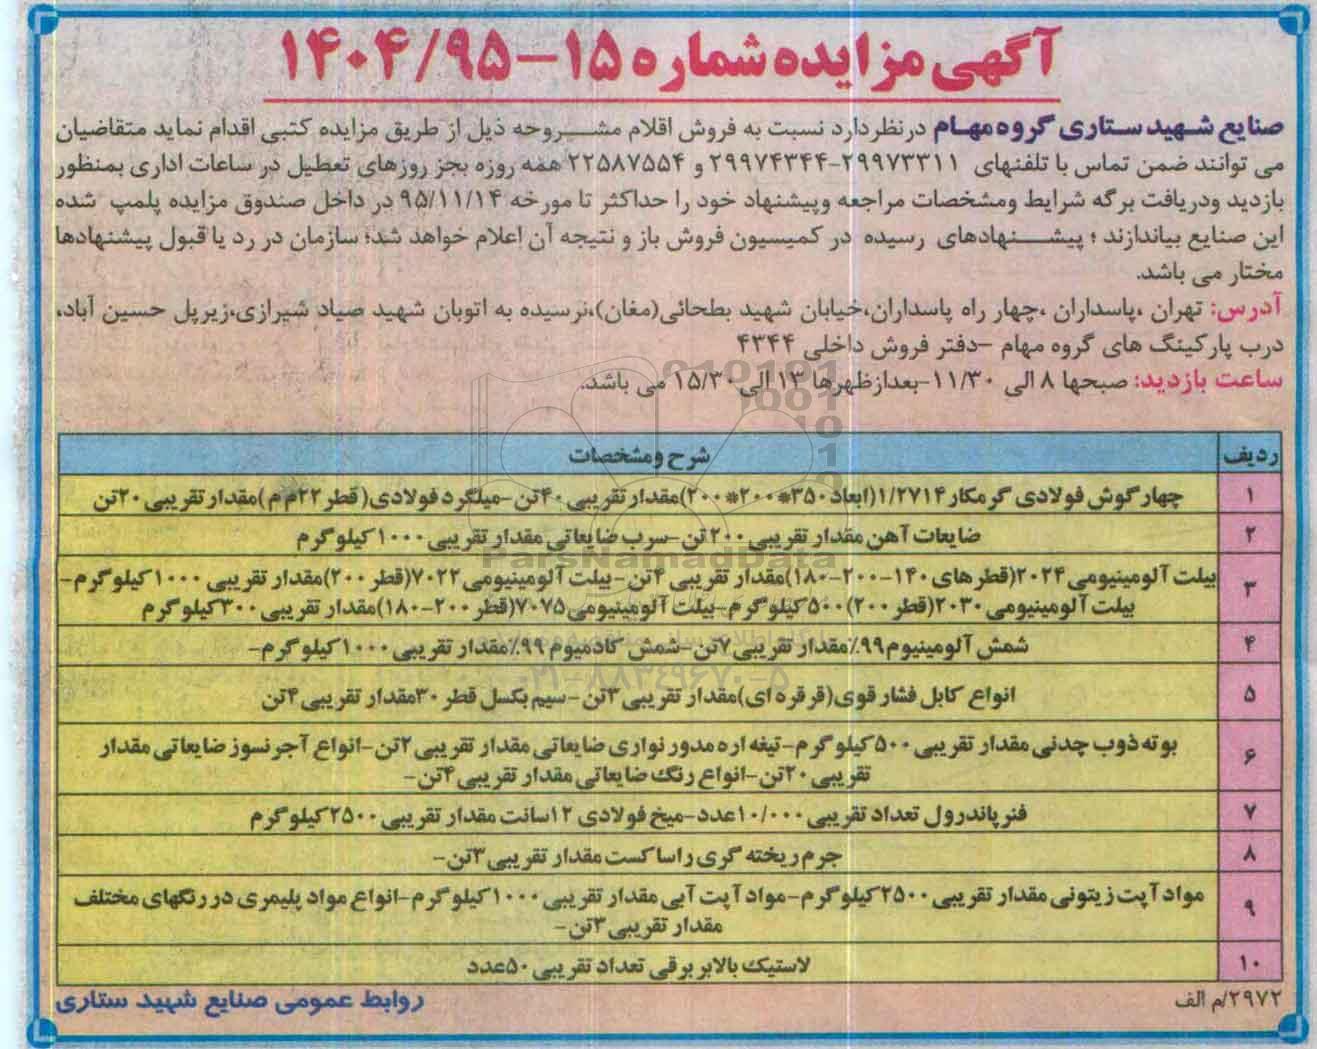 آگهی مزایده شماره ۱۵-۱۴۰۴/۹۵
صنایع شهید ستاری گروه مهام درنظردارد نسبت به فروش اقلام مشروحه ذیل از طریق مزایده کتبی اقدام نماید متقاضیان
می توانند ضمن تماس با تلفنهای ۲۹۹۷۳۳۱۱-۲۹۹۷۴۳۴۴ و ۲۲۵۸۷۵۵۴ همه روزه بجز روزهای تعطیل در ساعات اداری بمنظور
بازدید ودریافت برگه شرایط ومشخصات مراجعه وپیشنهاد خود را حداکثر تا مورخه ۹۵/۱۱/۱۴ در داخل صندوق مزایده پلمپ شده
این صنایع بیاندازند ؛ پیشنهادهای رسیده در کمیسیون فروش باز و نتیجه آن اعلام خواهد شد؛ سازمان در رد یا قبول پیشنهادها
مختار می باشد.
آدرس: تهران ،پاسداران ،چهار راه پاسداران،خیابان شهید بطحائی(مغان)،نرسیده به اتوبان شهید صیاد شیرازی،زیرپل حسین آباد،
درب پارکینگ های گروه مهام –دفتر فروش داخلی ۴۳۴۴
ساعت بازدید: صبحها ۸ الی ۱۱/۳۰-بعدازظهرها ۱۳ الی ۱۵/۳۰ می باشد.
ردیف شرح ومشخصات
۱ چهارگوش فولادی گرمکار ۱/۲۷۱۴(ابعاد ۳۵۰*۲۰۰*۲۰۰)مقدار تقریبی ۴۰تن-میلگرد فولادی( قطر ۲۲م م)مقدار تقریبی ۲۰تن
۲ ضایعات آهن مقدار تقریبی ۲۰۰ تن-سرب ضایعاتی مقدار تقریبی ۱۰۰۰ کیلوگرم
۳ بیلت آلومینیومی ۲۰۲۴(قطرهای ۱۴۰-۲۰۰-۱۸۰)مقدار تقریبی ۴تن-بیلت آلومینیومی ۷۰۲۲(قطر ۲۰۰)مقدار تقریبی ۱۰۰۰ کیلوگرم-
بیلت آلومینیومی ۲۰۳۰(قطر ۲۰۰)۵۰۰کیلوگرم-بیلت آلومینیومی ۷۰۷۵(قطر ۲۰۰-۱۸۰)مقدار تقریبی ۳۰۰کیلوگرم
۴ شمش آلومینیوم ۹۹٪مقدار تقریبی ۷تن-شمش کادمیوم ۹۹٪مقدار تقریبی ۱۰۰۰کیلوگرم-
۵ انواع کابل فشار قوی(قرقره ای)مقدار تقریبی ۳تن-سیم بکسل قطر ۳۰مقدار تقریبی ۴تن
۶ بوته ذوب چدنی مقدار تقریبی ۵۰۰کیلوگرم-تیغه اره مدور نواری ضایعاتی مقدار تقریبی ۲تن-انواع آجر نسوز ضایعاتی مقدار
تقریبی ۲۰تن-انواع رنگ ضایعاتی مقدار تقریبی ۴تن-
۷ فنر پاندرول تعداد تقریبی ۱۰/۰۰۰عدد-میخ فولادی ۱۲سانت مقدار تقریبی ۲۵۰۰کیلوگرم
۸ جرم ریخته گری راسا کست مقدار تقریبی ۳تن-
۹ مواد آپت زیتونی مقدار تقریبی ۲۵۰۰کیلوگرم-مواد آپت آبی مقدار تقریبی ۱۰۰۰کیلوگرم-انواع مواد پلیمری در رنگهای مختلف
مقدار تقریبی ۳تن-
۱۰ لاستیک بالابر برقی تعداد تقریبی ۵۰عدد
۲۹۷۲/م الف روابط عمومی صنایع شهید ستاری
ParsNamadData
۰۲۱-۸۸۳۴۹۶۷۰-۵